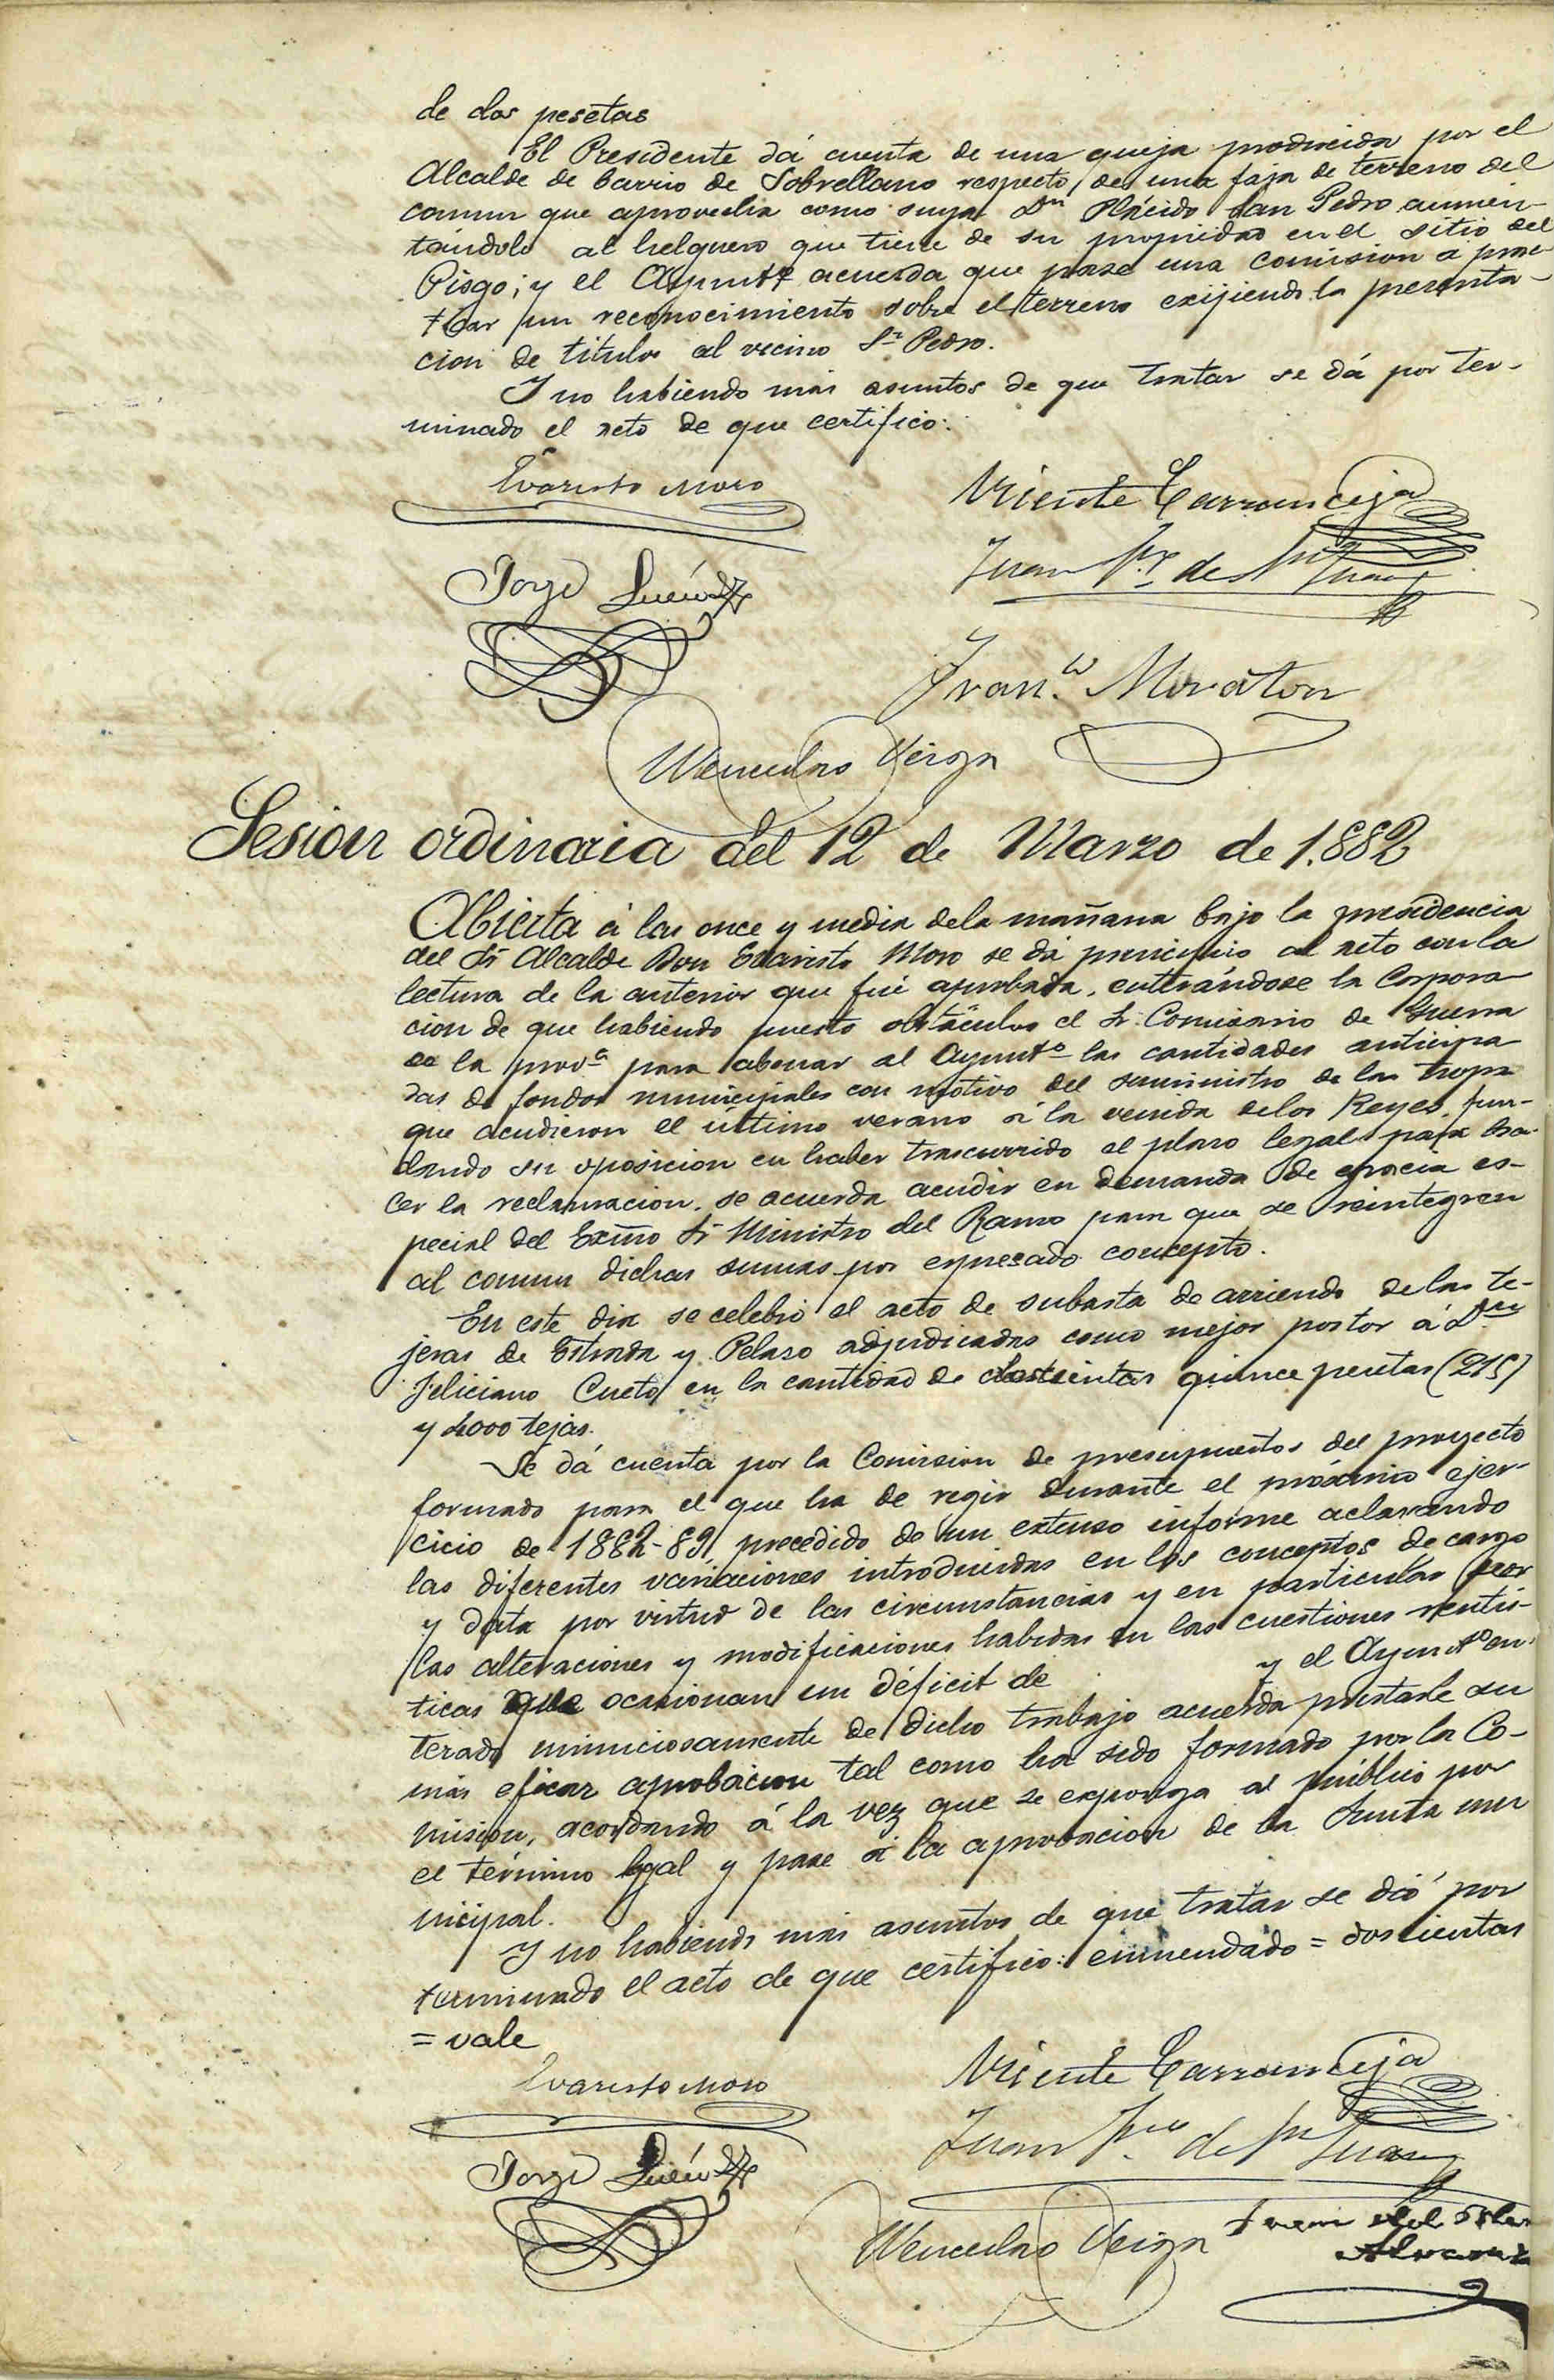 de dos pesetas
El Presidente dá cuenta de una queja producida por el
Alcalde de barrio de Sobrellano respecto de una faja de terreno del
comun que aprovecha como suya Dn Plácido San Pedro aumen-
tándolo al helguero que tiene de su propiedad en el sitio del
Pisgo; y el Ayuntº acuerda que pase una comision á prac-
ticar un reconocimiento sobre el terreno exijiendo la presenta-
cion de titulos al vecino Sn Pedro.
Y no habiendo más asuntos de que tratar se dá por ter-
minado el acto de que certifico:
Evaristo Moro
Vicente Carranceja
Jorge
Juan de Sn Juan
Franco Moraton
Wenceslao Veiga
Sesion ordinaria del 12 de Marzo de 1.882
Abierta á las once y media dela mañana bajo la presidencia
del Sr Alcalde Don Evaristo Moro se dá principio al acto con la
lectura de la anterior que fué aprobada, enterándose la Corpora-
cion de que habiendo puesto obstáculos el Sr. Comisario de Guerra
de la provª para abonar al Ayuntº las cantidades anticipa
das de fondos municipales con motivo del suministro de las tropas
que acudieron el último verano á la venida delos Reyes, fun-
dando su oposicion en haber trascurrido el plazo legal para ha-
cer la reclamacion, se acuerda acudir en demanda de gracia es-
pecial del Excmo Sr Ministro del Ramo para que se reintegren
al comun dichas sumas por expresado concepto.
En este dia se celebró el acto de subasta de arriendo delas te-
jeras de Estrada y Pelazo adjudicadas como mejor postor á Dn
Feliciano Cueto en la cantidad de doscientas quince pesetas (215)
y 4000 tejas.
Se dá cuenta por la Comision de presupuestos del proyecto
formado para el que ha de regir durante el próximo ejer-
cicio de 1882-83, precedido de un extenso informe aclarando
las diferentes variaciones introducidas en los conceptos de cargo
y data por virtud de las circunstancias y en particular por
las alteraciones y modificaciones habidas en las cuestiones rentís-
ticas que ocasionan un déficit de y el Ayuntº en-
terado minuciosamente de dicho trabajo acuerda prestarle su
más eficaz aprobacion tal como ha sido formado por la Co-
mision, acordando á la vez que se exponga al público por
el término legal y pase á la aprobacion de la Junta mu
nicipal.
Y no habiendo más asuntos de que tratar se dió por
terminado el acto de que certifico: enmendado = doscientas
= vale
Evaristo Moro
Vicente Carranceja
Jorge
Juan de Sn Juan
Wenceslao Veiga
Juan del